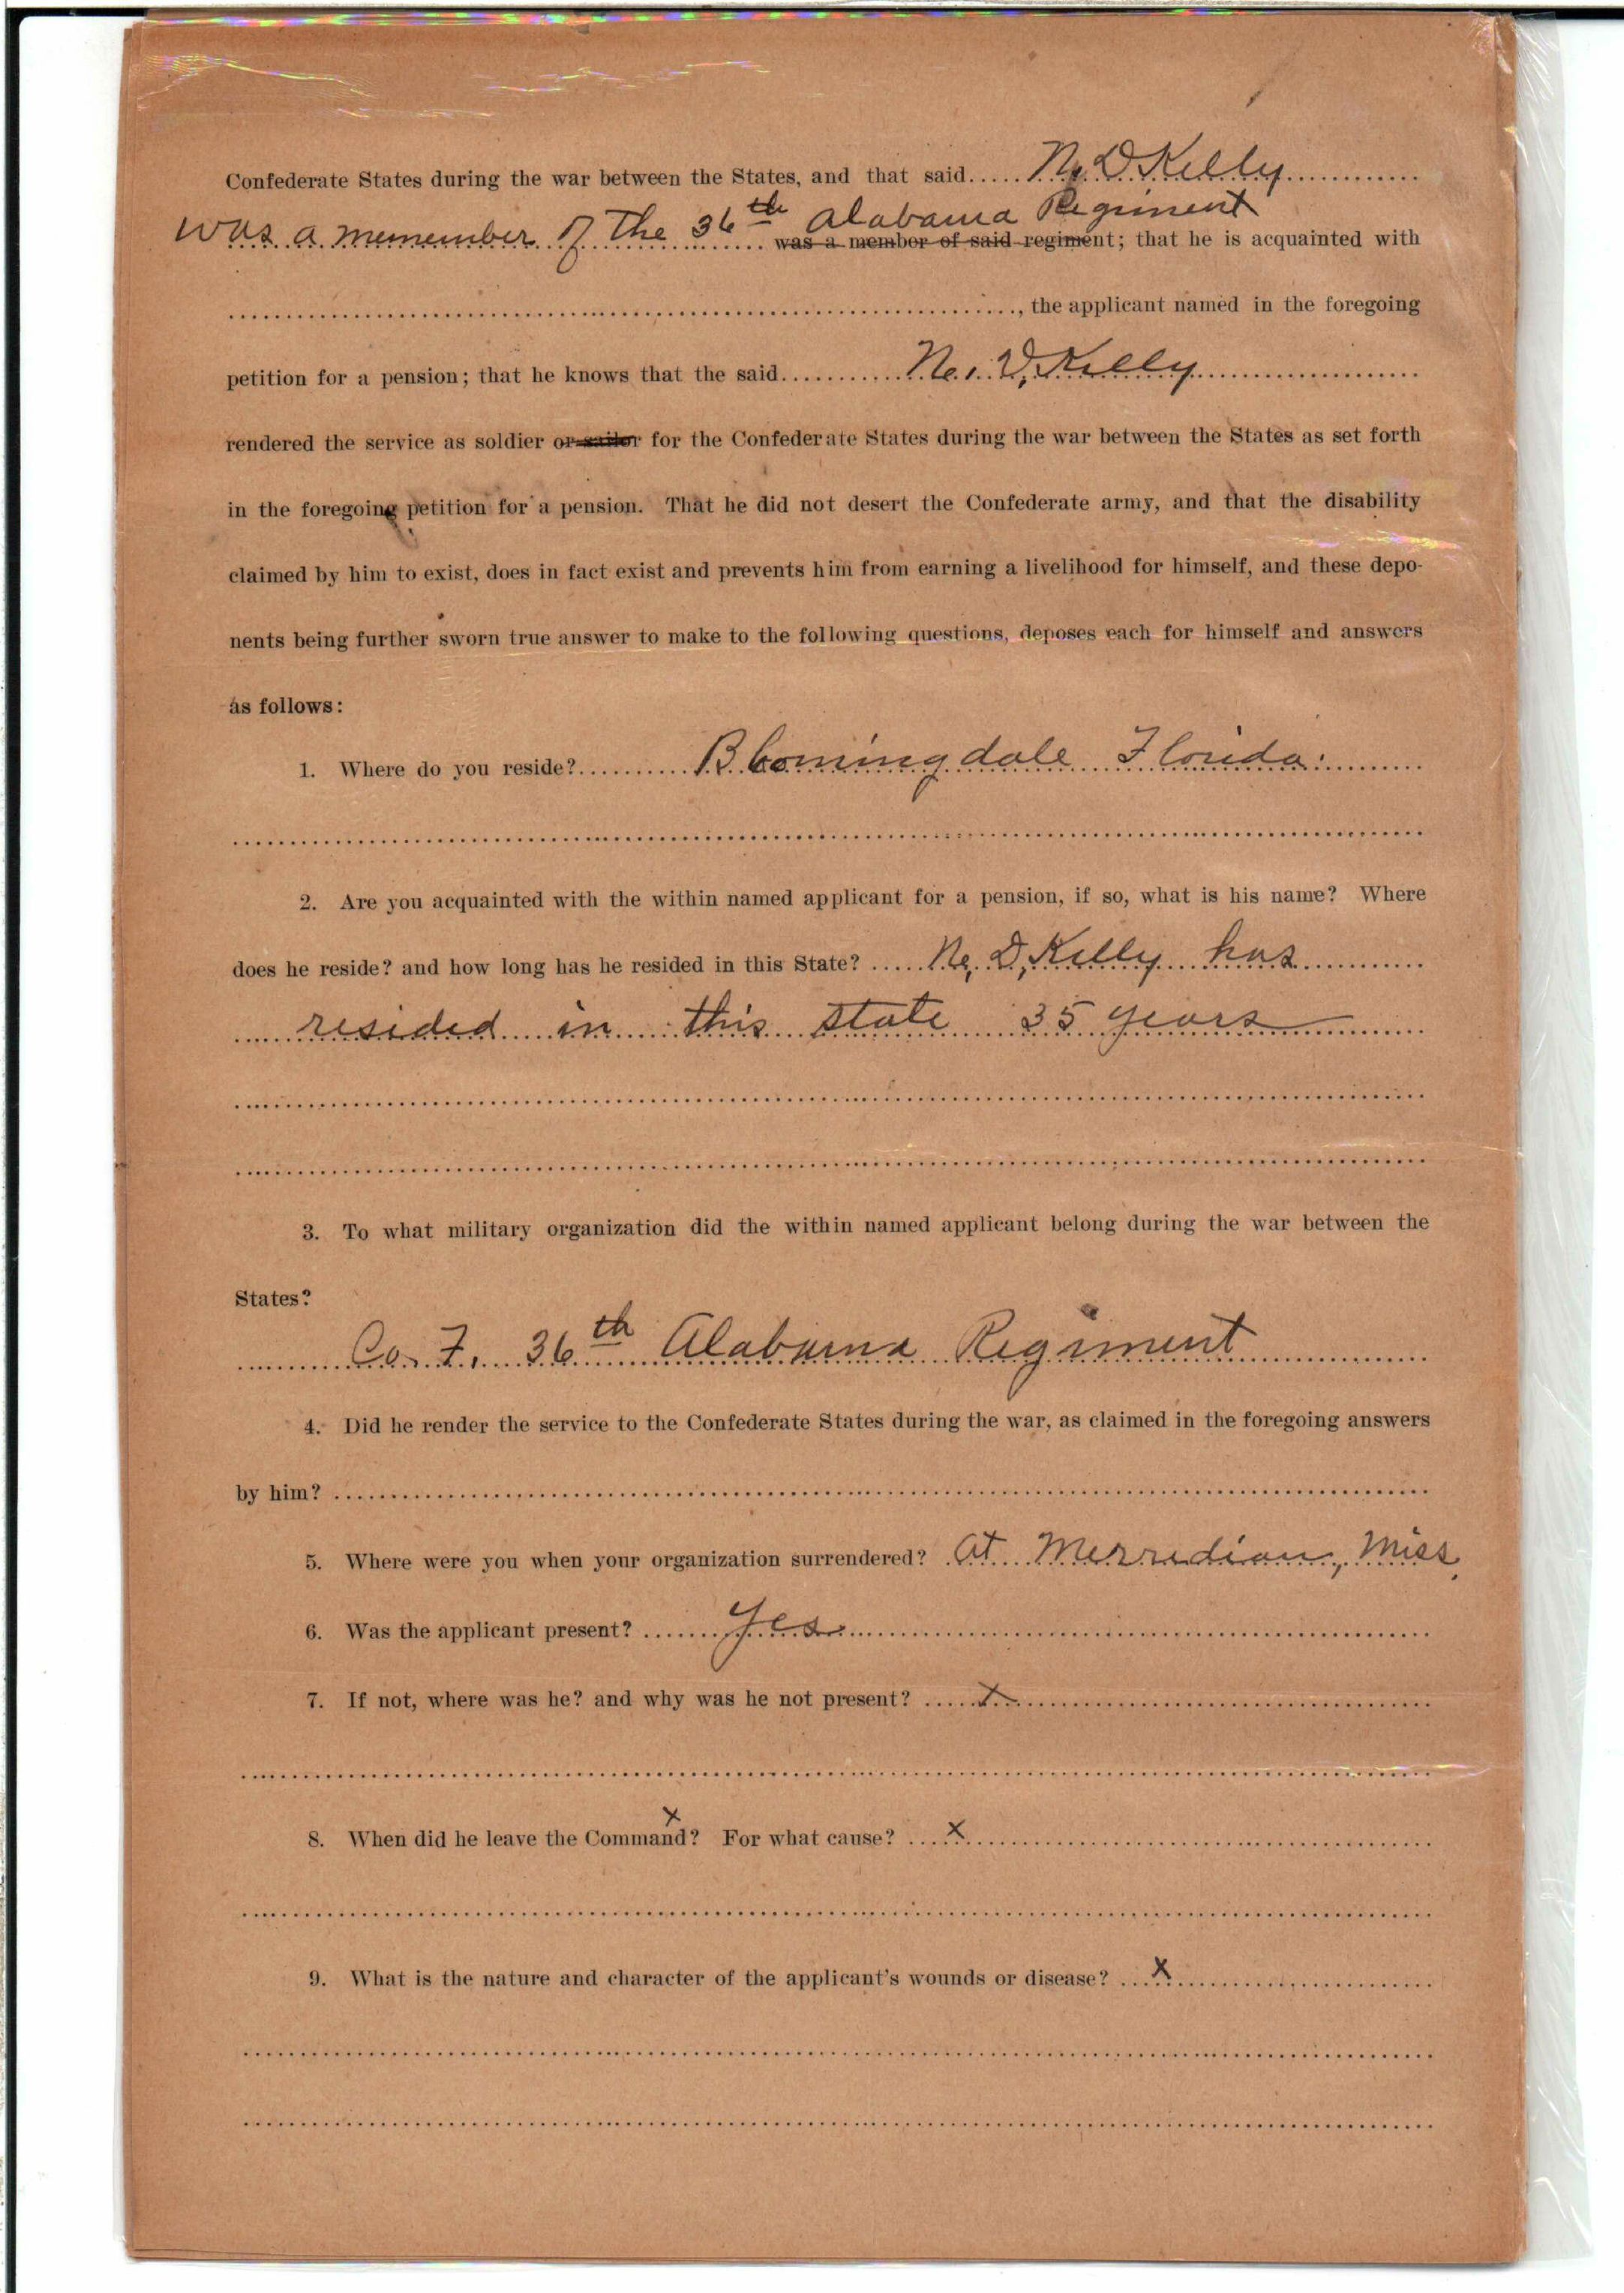 Confederate States during the war between the States, and that said..... N. D Kelly
was a memember of the 36th Alabama Regiment
was a member of said regiment; that he is acquainted with
, the applicant named in the foregoing
petition for a pension; that he knows that the said N. D. Kelly
rendered the service as soldier or sailor for the Confederate States during the war between the States as set forth
in the foregoing petition for a pension. That he did not desert the Confederate army, and that the disability
claimed by him to exist, does in fact exist and prevents him from earning a livelihood for himself, and these depo-
nents being further sworn true answer to make to the following questions, deposes each for himself and answers
as follows:
1. Where do you reside? Bloomingdale Florida.
2. Are you acquainted with the within named applicant for a pension, if so, what is his name? Where
does he reside? and how long has he resided in this State? N. D, Kelly has
resided in this state 35 years
3. To what military organization did the within named applicant belong during the war between the
States?
Co. F, 36th Alabama Regiment
4. Did he render the service to the Confederate States during the war, as claimed in the foregoing answers
by him?
5. Where were you when your organization surrendered? At Merredian, Miss.
6. Was the applicant present? Yes
7. If not, where was he? and why was he not present? X
8. When did he leave the Command? X For what cause? X
9. What is the nature and character of the applicant's wounds or disease? X